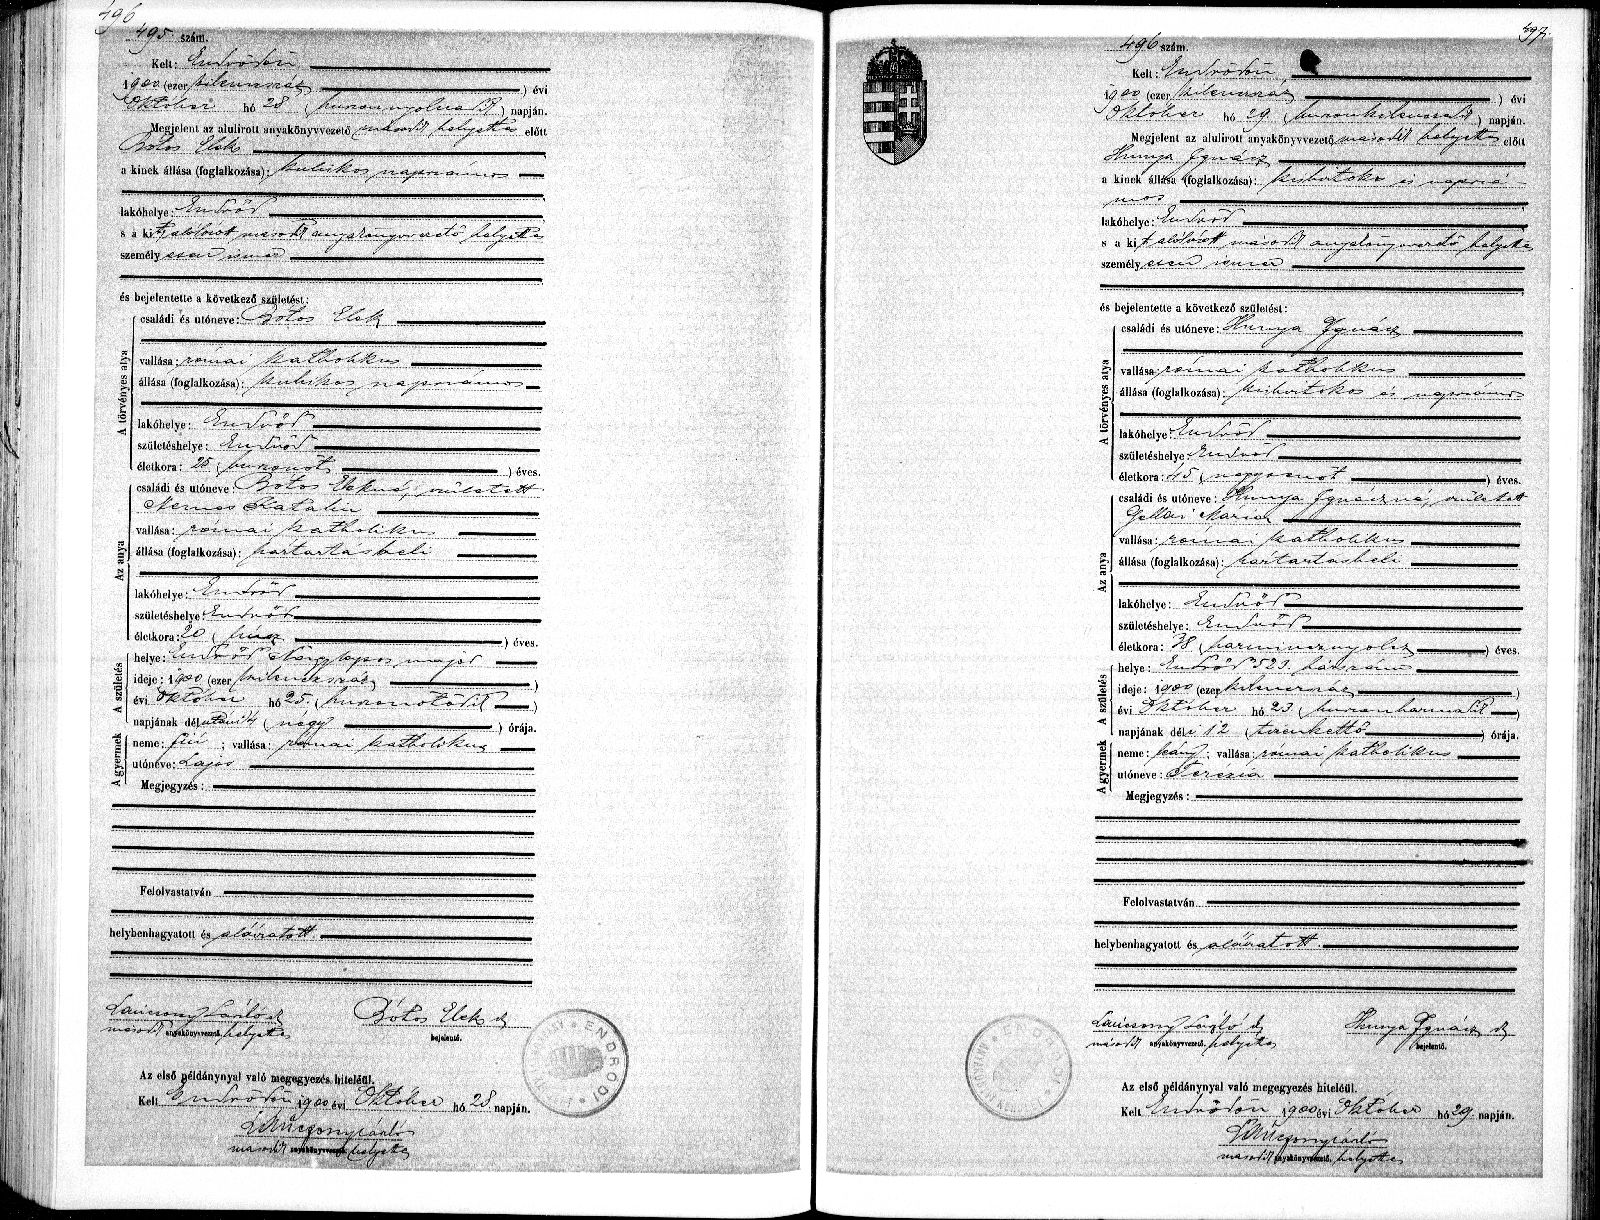 496
495 szám.
Kelt: Endrődön
1900 (ezer kilencszáz) évi
Október hó 28 (huszonnyolcadik) napján.
Megjelent az alulirott anyakönyvvezető második helyettes előtt
Botos Elek
a kinek állása (foglalkozása): kubikos napszámos
lakóhelye: Endrőd
s a kit alólirott második anyakönyvvezető helyettes
személyesen ismer
és bejelentette a következő születést:
A törvényes atya
családi és utóneve: Botos Elek
vallása: római katholikus
állása (foglalkozása): kubikos napszámos
lakóhelye: Endrőd
születéshelye: Endrőd
életkora: 25 (huszonöt) éves.
Az anya
családi és utóneve: Botos Elekné, született
Nemes Katalin
vallása: római katholikus
állása (foglalkozása): háztartásbeli
lakóhelye: Endrőd
születéshelye: Endrőd
életkora: 20 (húsz) éves.
A születés
helye: Endrőd Nagylapos major
ideje: 1900 (ezer kilencszáz)
évi Október hó 25. (huszonötödik)
napjának délutáni 4 (négy) órája.
A gyermek
neme: fiú; vallása: római katholikus
utóneve: Lajos
Megjegyzés:
Felolvastatván
helybenhagyatott és aláiratott.
második anyakönyvvezető. helyettes
Bótos Elek
bejelentő.
ENDRŐDI
Az első példánynyal való megegyezés hiteléül.
Kelt Endrődön 1900 évi Október hó 28 napján.
második anyakönyvvezető helyettes
497.
496 szám.
Kelt: Endrődön
1900 (ezer kilencszáz) évi
Október hó 29. (huszonkilencedik) napján.
Megjelent az alulirott anyakönyvvezető második helyettes előtt
Hunya Ignácz
a kinek állása (foglalkozása): kisbirtokos és napszá-
mos
lakóhelye: Endrőd
s a kit alólirott második anyakönyvvezető helyettes
személyesen ismer
és bejelentette a következő születést:
A törvényes atya
családi és utóneve: Hunya Ignácz
vallása: római katholikus
állása (foglalkozása): kisbirtokos és napszámos
lakóhelye: Endrőd
születéshelye: Endrőd
életkora: 45 (negyvenöt) éves.
Az anya
családi és utóneve: Hunya Ignáczné, született
Gellai Mária
vallása: római katholikus
állása (foglalkozása): háztartásbeli
lakóhelye: Endrőd
születéshelye: Endrőd
életkora: 38 (harmincznyolcz) éves.
A születés
helye: Endrőd 523. házszám
ideje: 1900 (ezer kilencszáz)
évi Október hó 23. (huszonharmadik)
napjának déli 12 (tizenkettő) órája.
A gyermek
neme: leány; vallása: római katholikus
utóneve: Terézia
Megjegyzés:
Felolvastatván
helybenhagyatott és aláiratott.
második anyakönyvvezető. helyettes
Hunya Ignácz
bejelentő.
Az első példánynyal való megegyezés hiteléül.
Kelt Endrődön 1900 évi Október hó 29 napján.
második anyakönyvvezető. helyettes